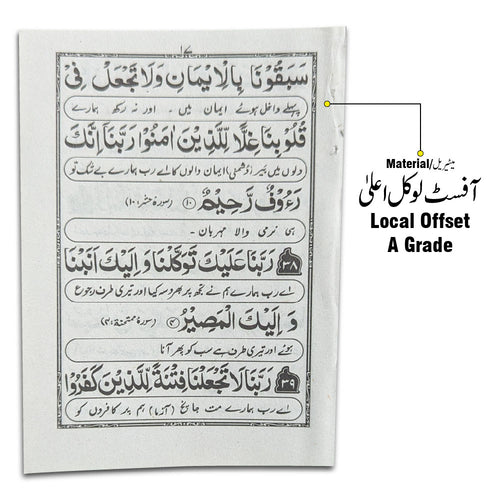 ۱۷
سَبَقُوْنَا بِالْاِيْمَانِ وَلَا تَجْعَلْ فِیْ
پہلے داخل ہوئے ایمان میں ۔ اور نہ رکھ ہمارے
قُلُوْبِنَا غِلًّا لِّلَّذِيْنَ اٰمَنُوْا رَبَّنَاۤ اِنَّكَ
دلوں میں بَیر (دُشمنی) ایمان والوں کا اے رب ہمارے بے شک تو
رَءُوْفٌ رَّحِيْمٌ ۝۱۰ (سورۂ حشر:۱۰)
ہی نرمی والا مہربان ۔
۳۸ رَبَّنَا عَلَيْكَ تَوَكَّلْنَا وَاِلَيْكَ اَنَبْنَا
اے رب ہمارے ہم نے تجھ پر بھروسہ کیا اور تیری طرف رجوع
وَ اِلَيْكَ الْمَصِيْرُ ۝۴ (سورۂ ممتحنہ:۴)
ہوئے اور تیری طرف ہے سب کو پھر آنا
۳۹ رَبَّنَا لَا تَجْعَلْنَا فِتْنَةً لِّلَّذِيْنَ كَفَرُوْا
اے رب ہمارے مت جانچ (آزما) ہم پر کافروں کو
Material/میٹیریل
آفسٹ لوکل اعلیٰ
Local Offset
A Grade